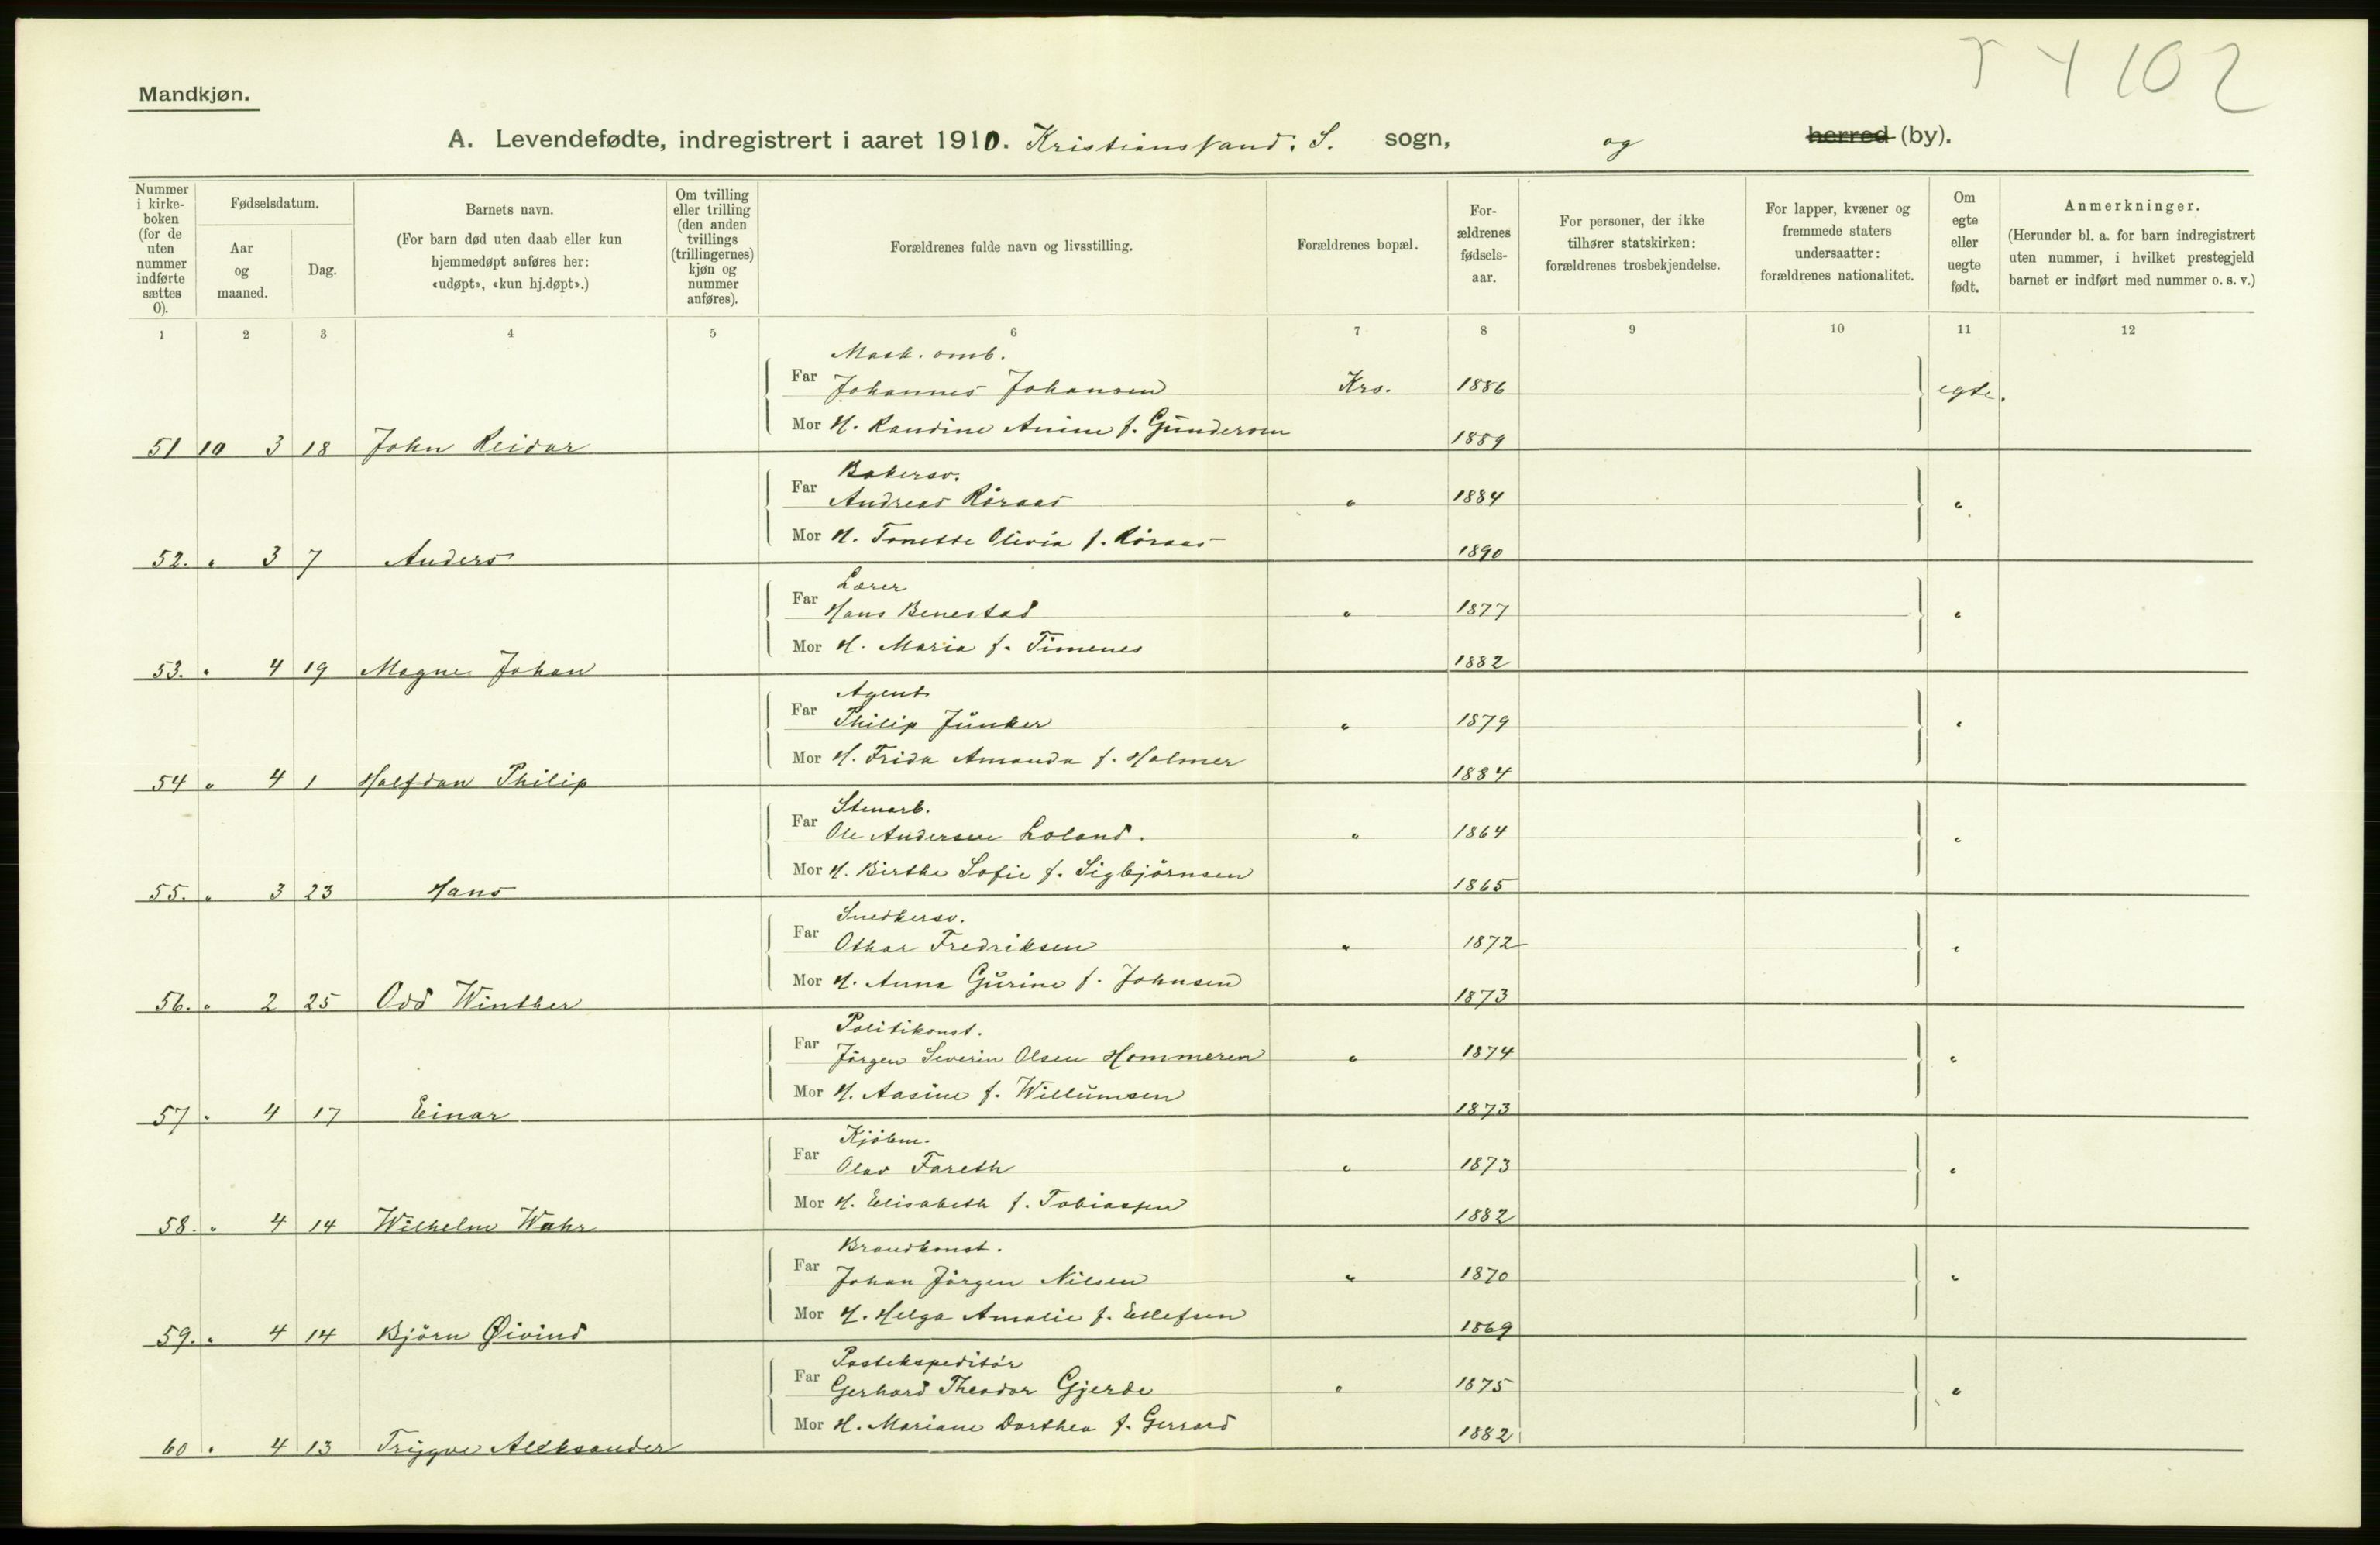 T 4 102
Mandkjøn.
A. Levendefødte, indregistrert i aaret 1910. Kristianssand. S. sogn, og herred (by).
Nummer i kirke-boken (for de uten nummer indførte sættes 0).
Fødselsdatum.
Aar og maaned.
Dag.
Barnets navn.
(For barn død uten daab eller kun hjemmedøpt anføres her: «udøpt», «kun hj.døpt».)
Om tvilling eller trilling (den anden tvillings (trillingernes) kjøn og nummer anføres).
Forældrenes fulde navn og livsstilling.
Forældrenes bopæl.
For-ældrenes fødsels-aar.
For personer, der ikke tilhører statskirken: forældrenes trosbekjendelse.
For lapper, kvæner og fremmede staters undersaatter: forældrenes nationalitet.
Om egte eller uegte født.
Anmerkninger.
(Herunder bl. a. for barn indregistrert uten nummer, i hvilket prestegjeld barnet er indført med nummer o. s. v.)
1 2 3 4 5 6 7 8 9 10 11 12
Mask. omb.
Far Johannes Johansen Krs. 1886 egte.
Mor H. Randine Anine f. Gundersen 1889
51 10 3 18 John Reidar
Bakersv.
Far Andreas Röraas " 1884 "
Mor H. Tonette Olivia f. Röraas 1890
52. " 3 7 Anders
Lærer
Far Hans Benestad " 1877 "
Mor H. Maria f. Timenes 1882
53. " 4 19 Magne Johan
Agent
Far Philip Junker " 1879 "
Mor H. Frida Amanda f. Holmer 1884
54 " 4 1 Halfdan Philip
Stenarb.
Far Ole Andersen Loland. " 1864 "
Mor H. Birthe Sofie f. Sigbjörnsen 1865
55. " 3 23 Hans
Snedkersv.
Far Othar Fredriksen " 1872 "
Mor H. Anna Gurine f. Johnsen 1873
56. " 2 25 Odd Winther
Politikonst.
Far Jörgen Severin Olsen Hommeren " 1874 "
Mor H. Aasine f. Willumsen 1873
57 " 4 17 Einar
Kjöbm.
Far Olav Fareth " 1873 "
Mor H. Elisabeth f. Tobiassen 1882
58. " 4 14 Wilhelm Wahr
Brandkonst.
Far Johan Jörgen Nilsen " 1870 "
Mor H. Helga Amalie f. Ellefsen 1869
59. " 4 14 Björn Øivind
Postekspeditör
Far Gerhard Theodor Gjerde " 1875 "
Mor H. Mariane Dorthea f. Gerrard 1882
60 " 4 13 Trygve Aleksander